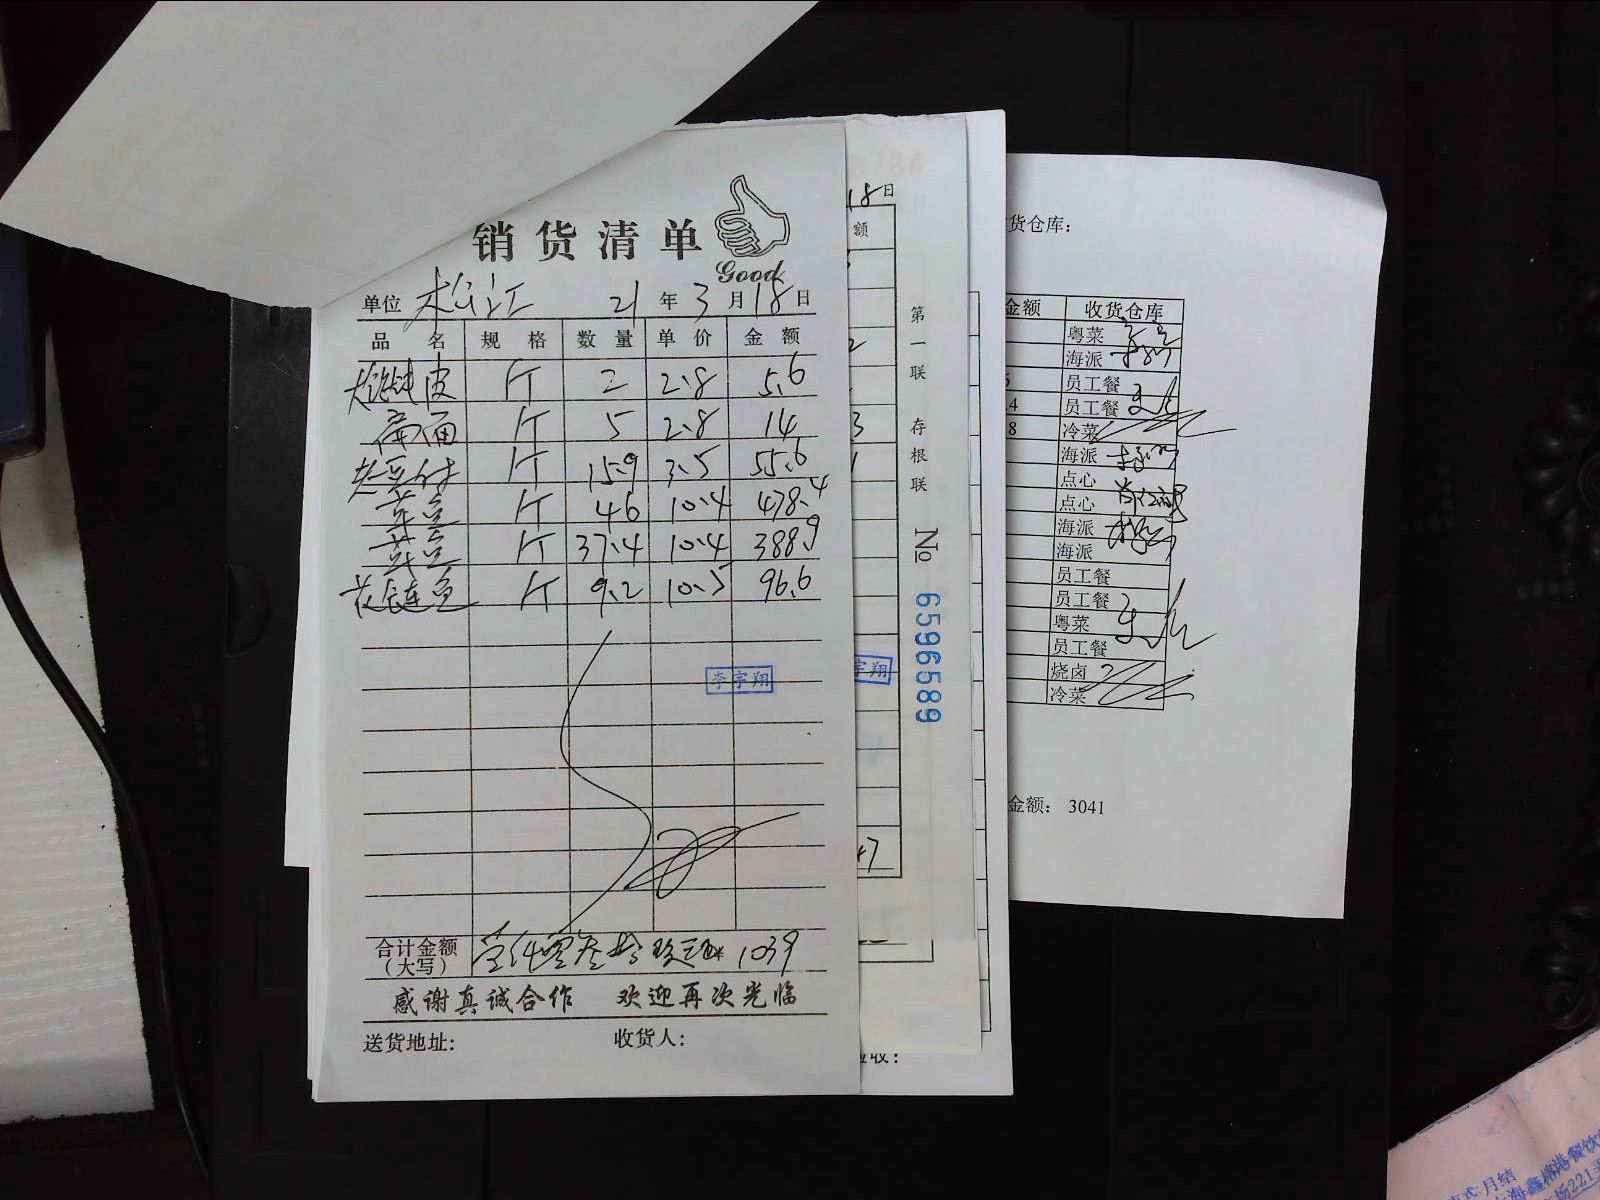 销货清单
Good
单位 松江 21 年 3 月 18 日
品名 规格 数量 单价 金额
大馄饨皮 斤 2 2.8 5.6
面 斤 5 2.8 14
斤 15.9 3.5 55.6
草鱼 斤 46 10.4 478.4
草鱼 斤 37.4 10.4 388.9
花鲢鱼 斤 9.2 10.5 96.6
李宇翔
合计金额 壹仟零叁拾玖元 1039
（大写）
感谢真诚合作 欢迎再次光临
送货地址： 收货人：
18日
额
2
3
宇翔
47
第一联 存根联
№ 6596589
验收：
货仓库：
金额 收货仓库
粤菜
海派
5 员工餐
.4 员工餐
8 冷菜
海派
点心
点心
海派
海派
员工餐
员工餐
粤菜
员工餐
烧卤
冷菜
金额： 3041
式:月结
上海鑫榕港餐饮
场221